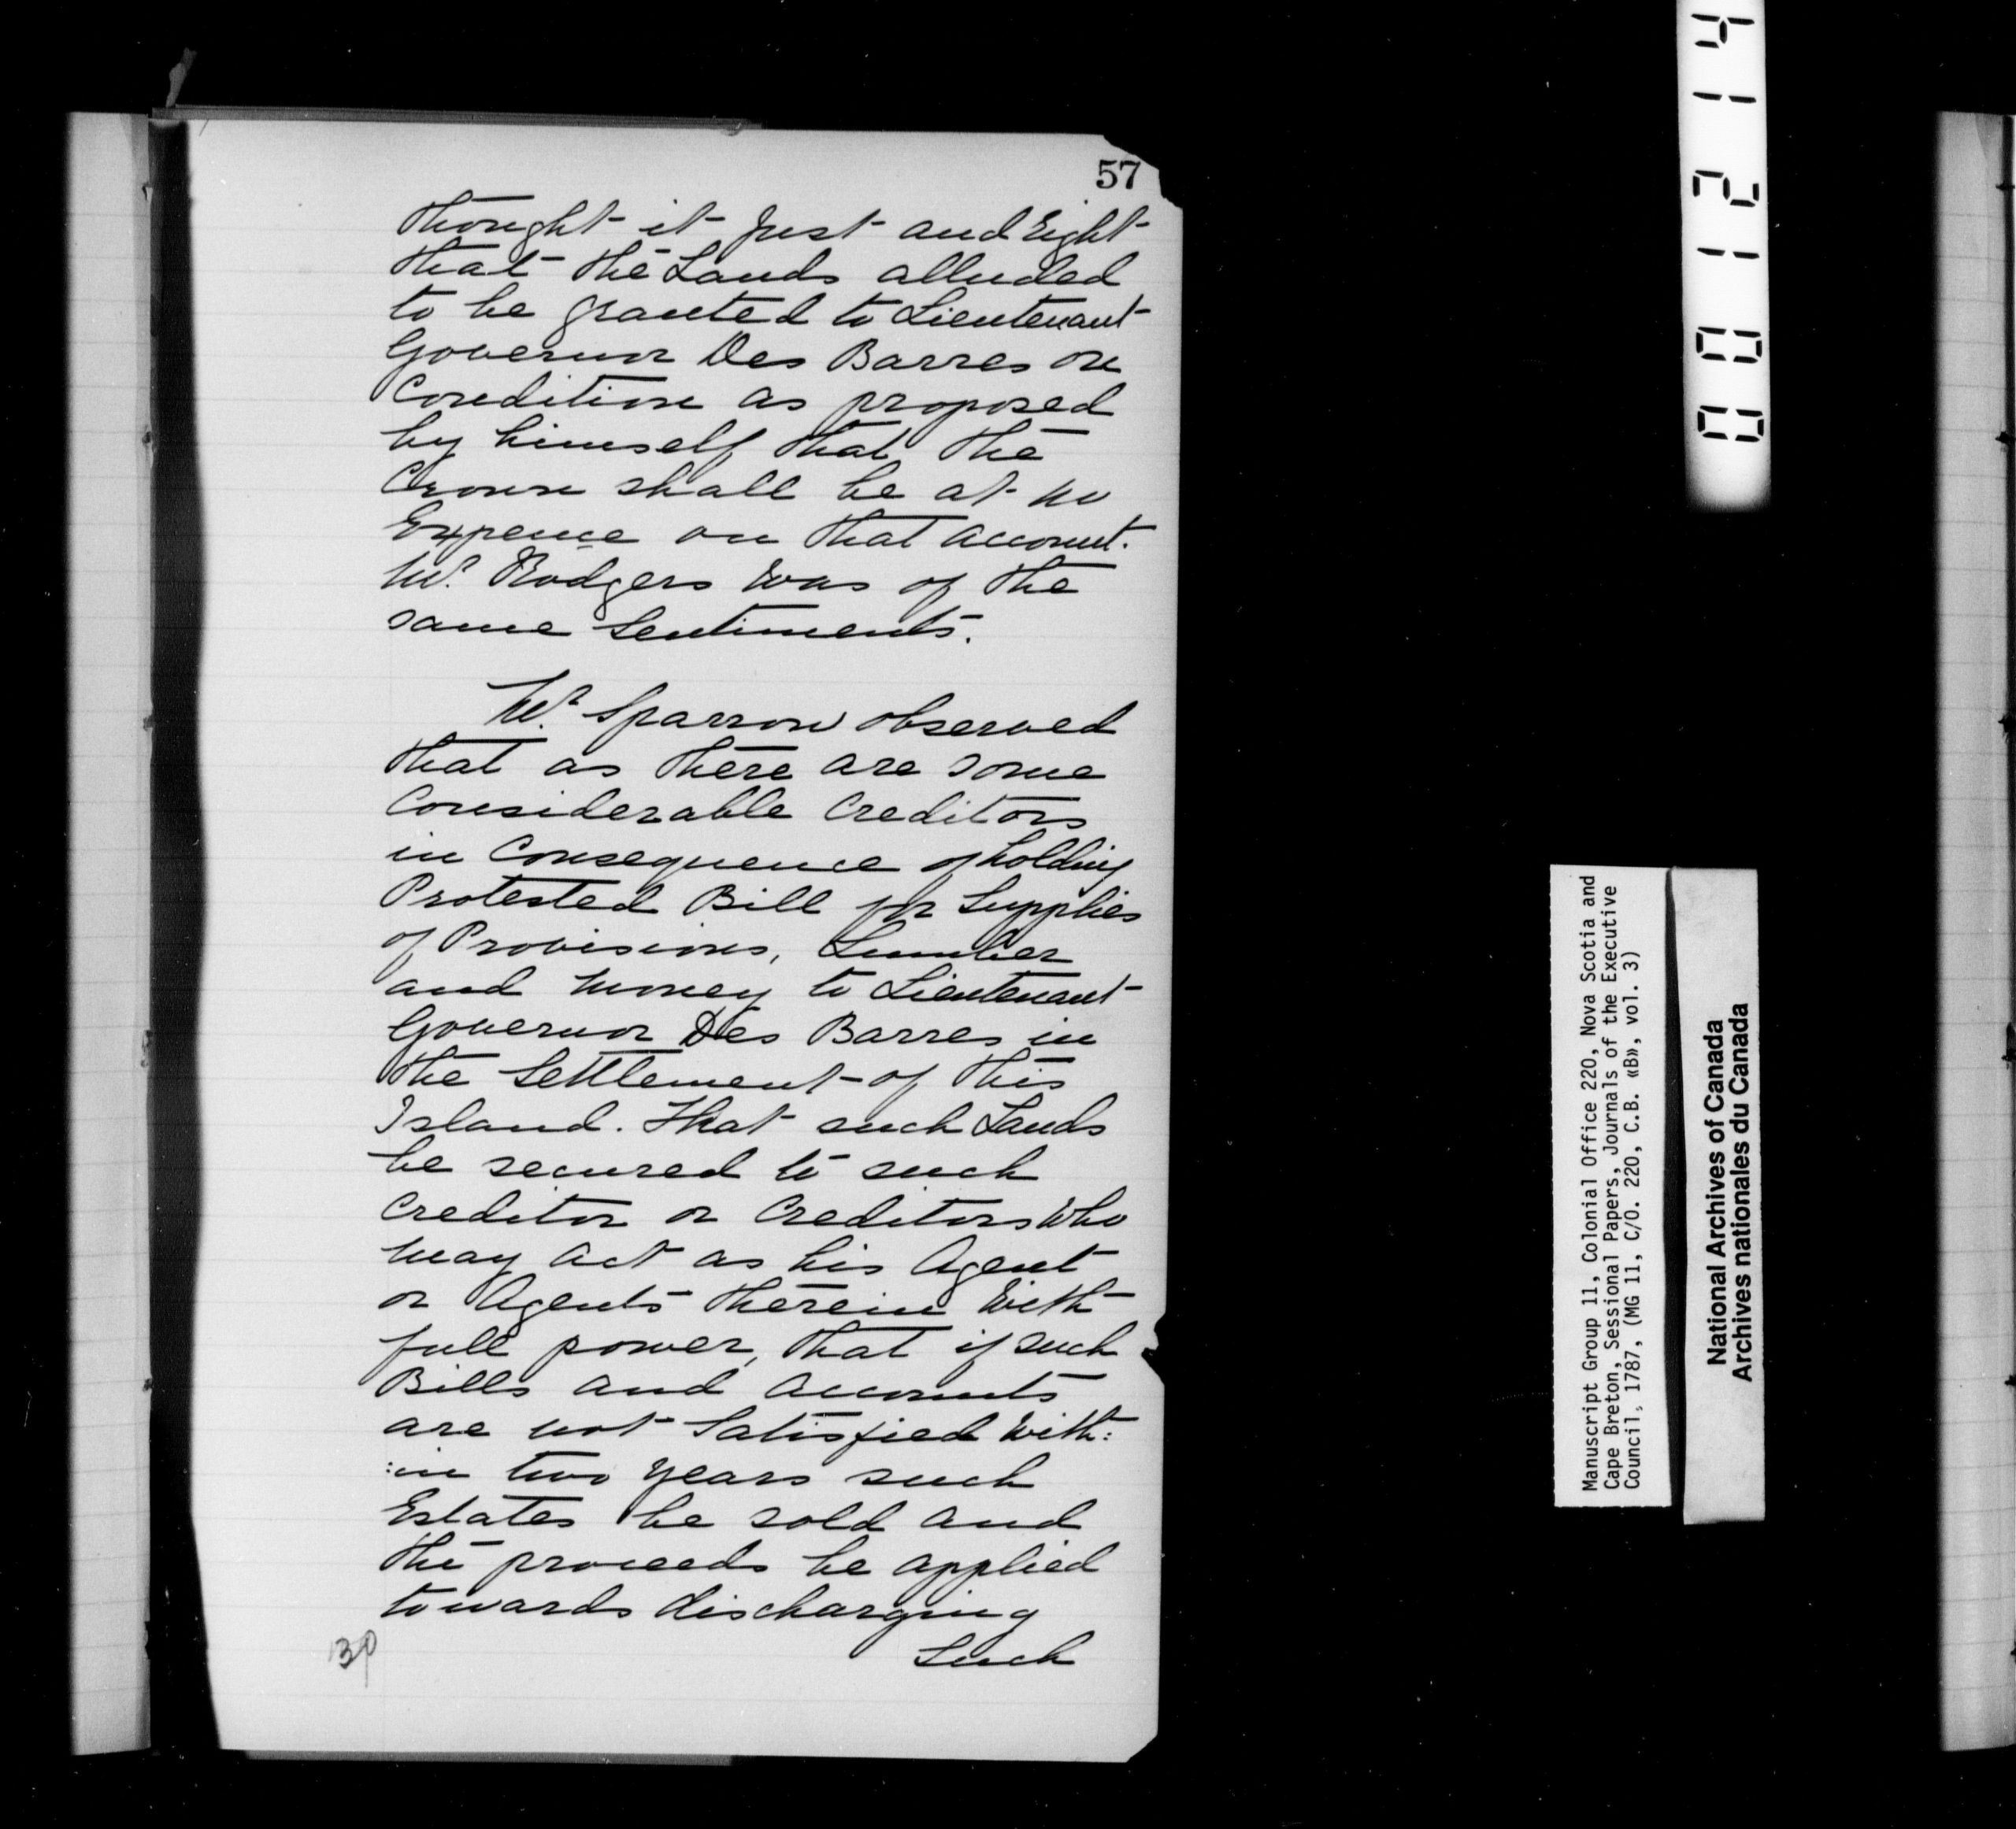 57
thought it just and Right
that the Lands alluded
to be granted to Lieutenant
Governor Des Barres on
Condition as proposed
by himself that the
Crown shall be at no
Expence on that account.
Mr. Rodgers was of the
same Sentiments.
Mr. Sparrow observed
that as there are some
Considerable Creditors
in Consequence of holding
Protested Bill for Supplies
of Provisions, Lumber
and Money to Lieutenant
Governor Des Barres in
the Settlement of this
Island. That such Lands
be secured to such
Creditor or Creditors who
may act as his Agent
or Agents therein with
full power, that if such
Bills and accounts
are not Satisfied with:
:in two years such
Estates be sold and
the proceeds be applied
towards discharging
Such
30
001214
Manuscript Group 11, Colonial Office 220, Nova Scotia and
Cape Breton, Sessional Papers, Journals of the Executive
Council, 1787, (MG 11, C/O. 220, C.B. «B», vol. 3)
National Archives of Canada
Archives nationales du Canada